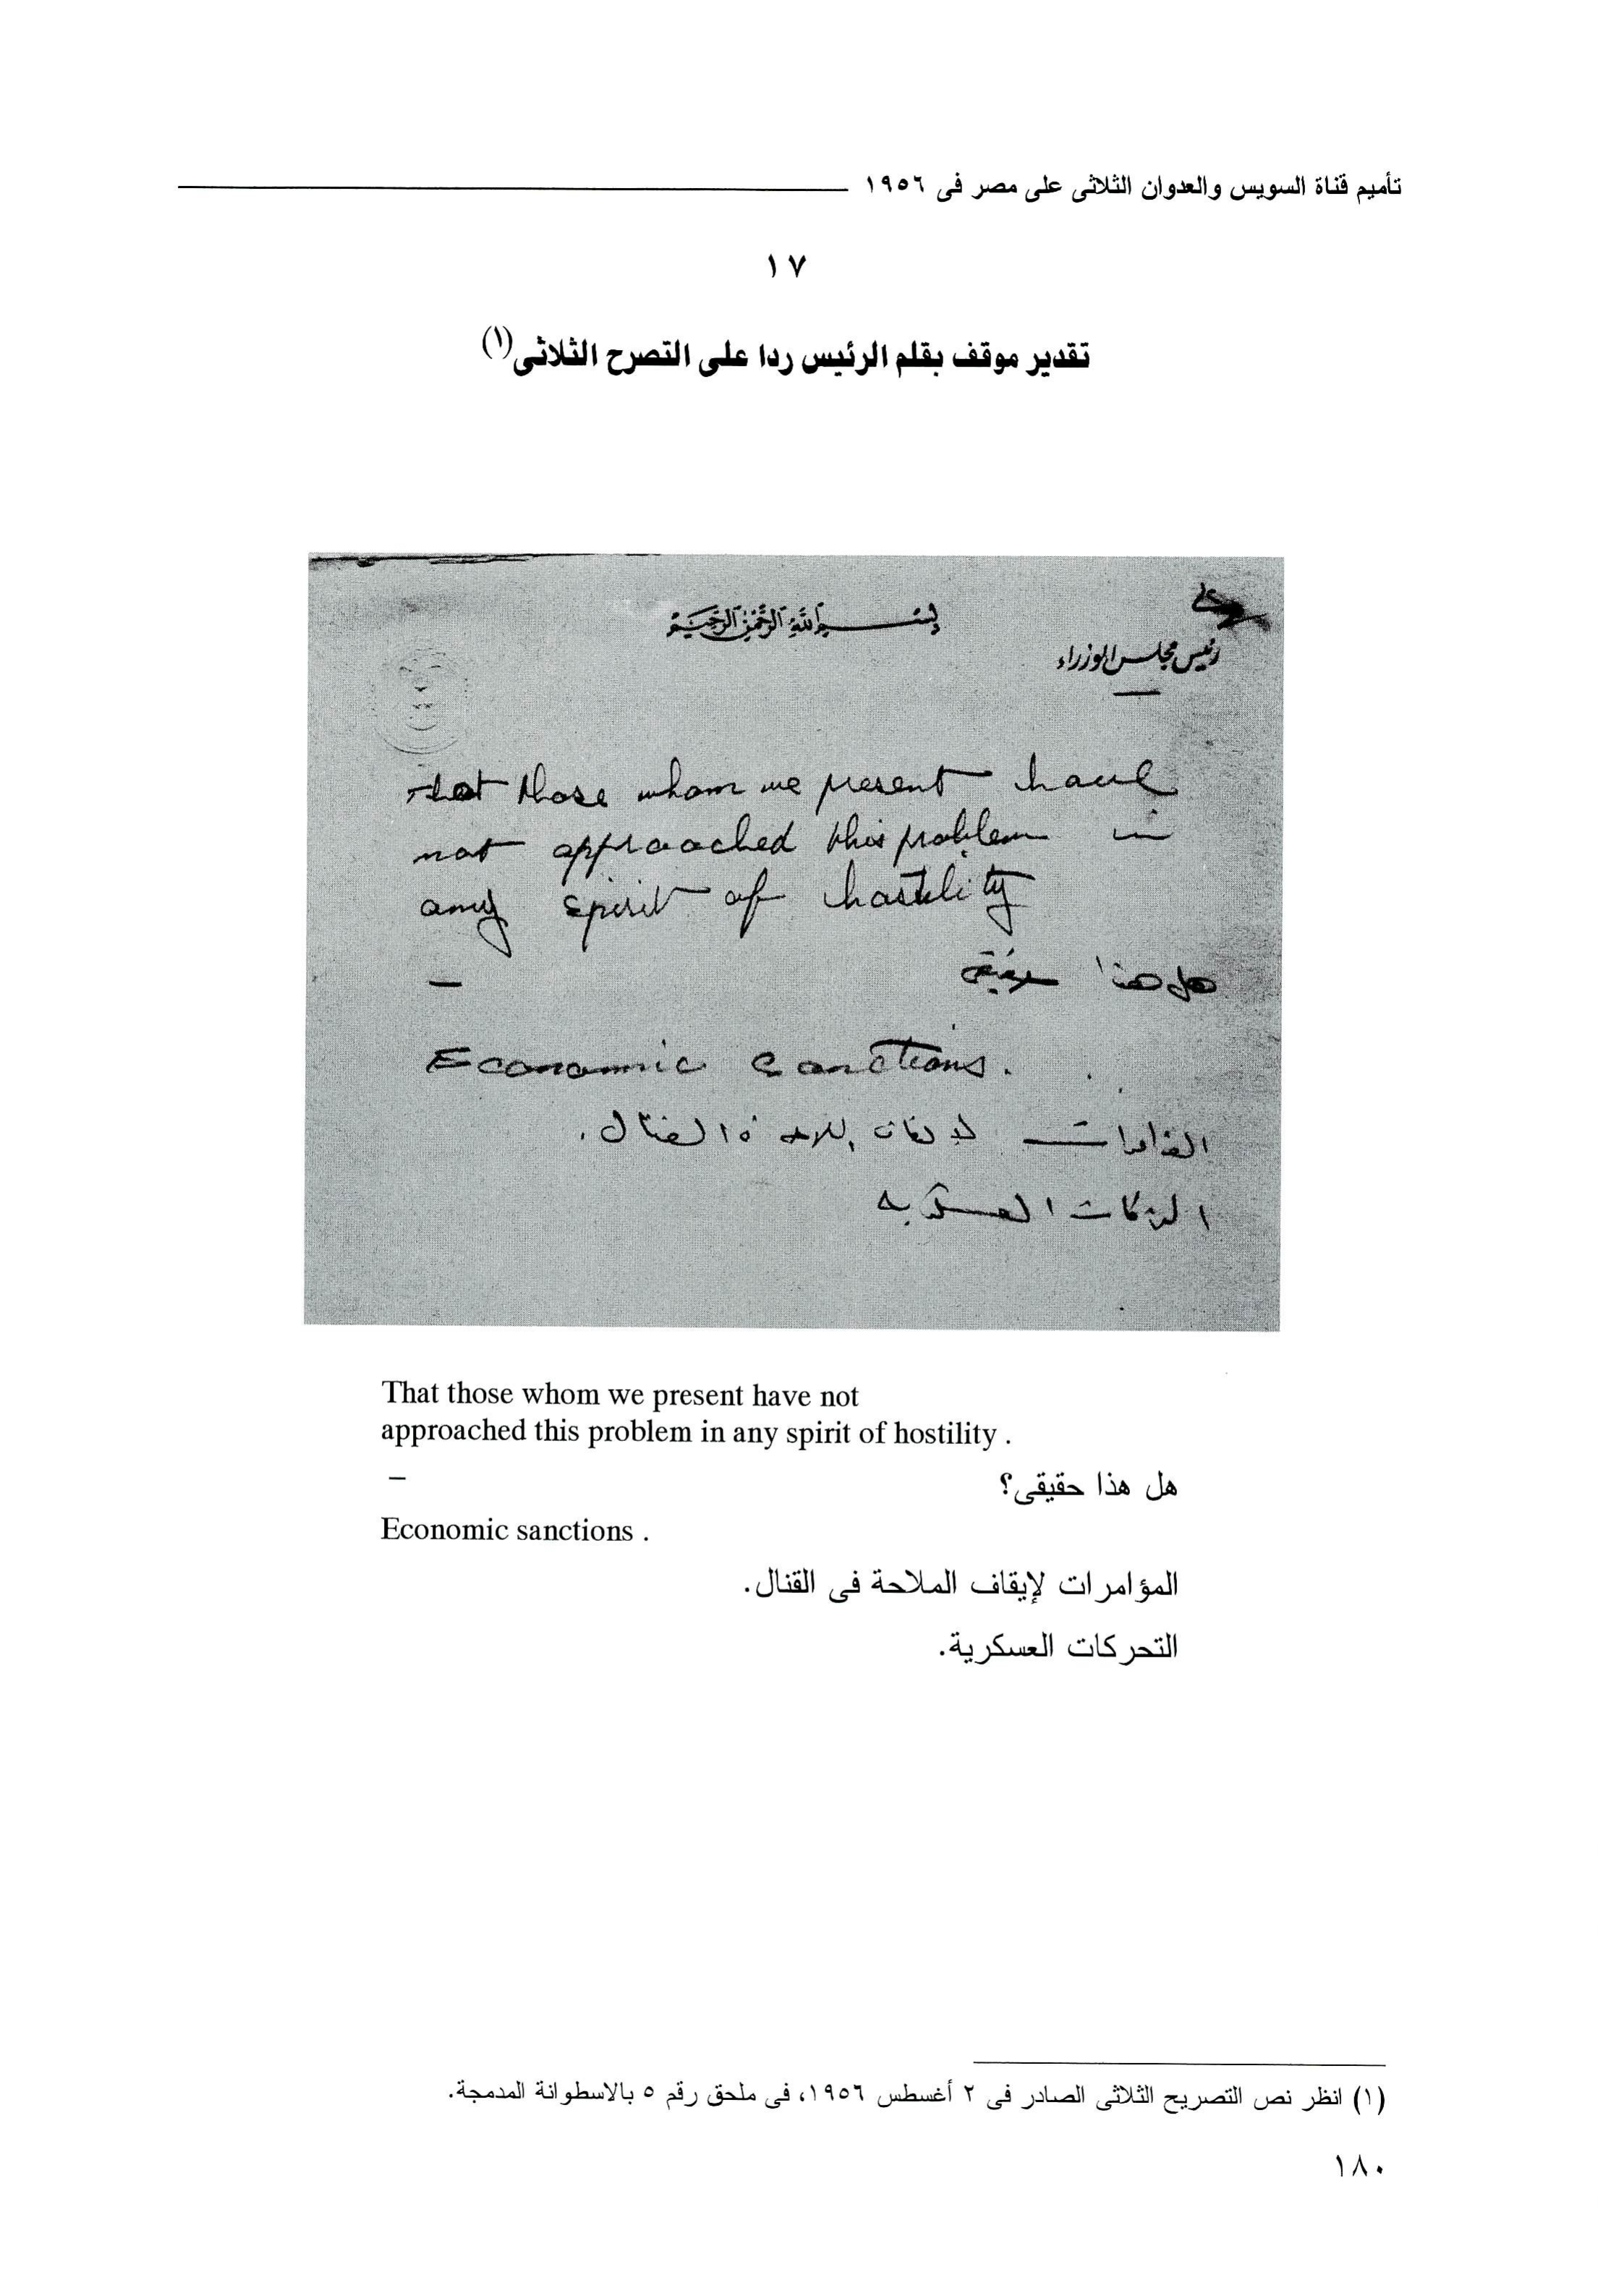 تأميم قناة السويس والعدوان الثلاثى على مصر فى ١٩٥٦
١٧
تقدير موقف بقلم الرئيس ردا على التصرح الثلاثى(١)
بسم الله الرحمن الرحيم
رئيس مجلس الوزراء
That those whom we present have
not approached this problem in
any spirit of hostility
هل هذا حقيقى
–
Economic Sanctions.
المؤامرات لايقاف الملاحة فى القنال.
التحركات العسكرية
That those whom we present have not
approached this problem in any spirit of hostility .
هل هذا حقيقى؟
–
Economic sanctions .
المؤامرات لإيقاف الملاحة فى القنال.
التحركات العسكرية.
(١) انظر نص التصريح الثلاثى الصادر فى ٢ أغسطس ١٩٥٦، فى ملحق رقم ٥ بالاسطوانة المدمجة.
١٨٠